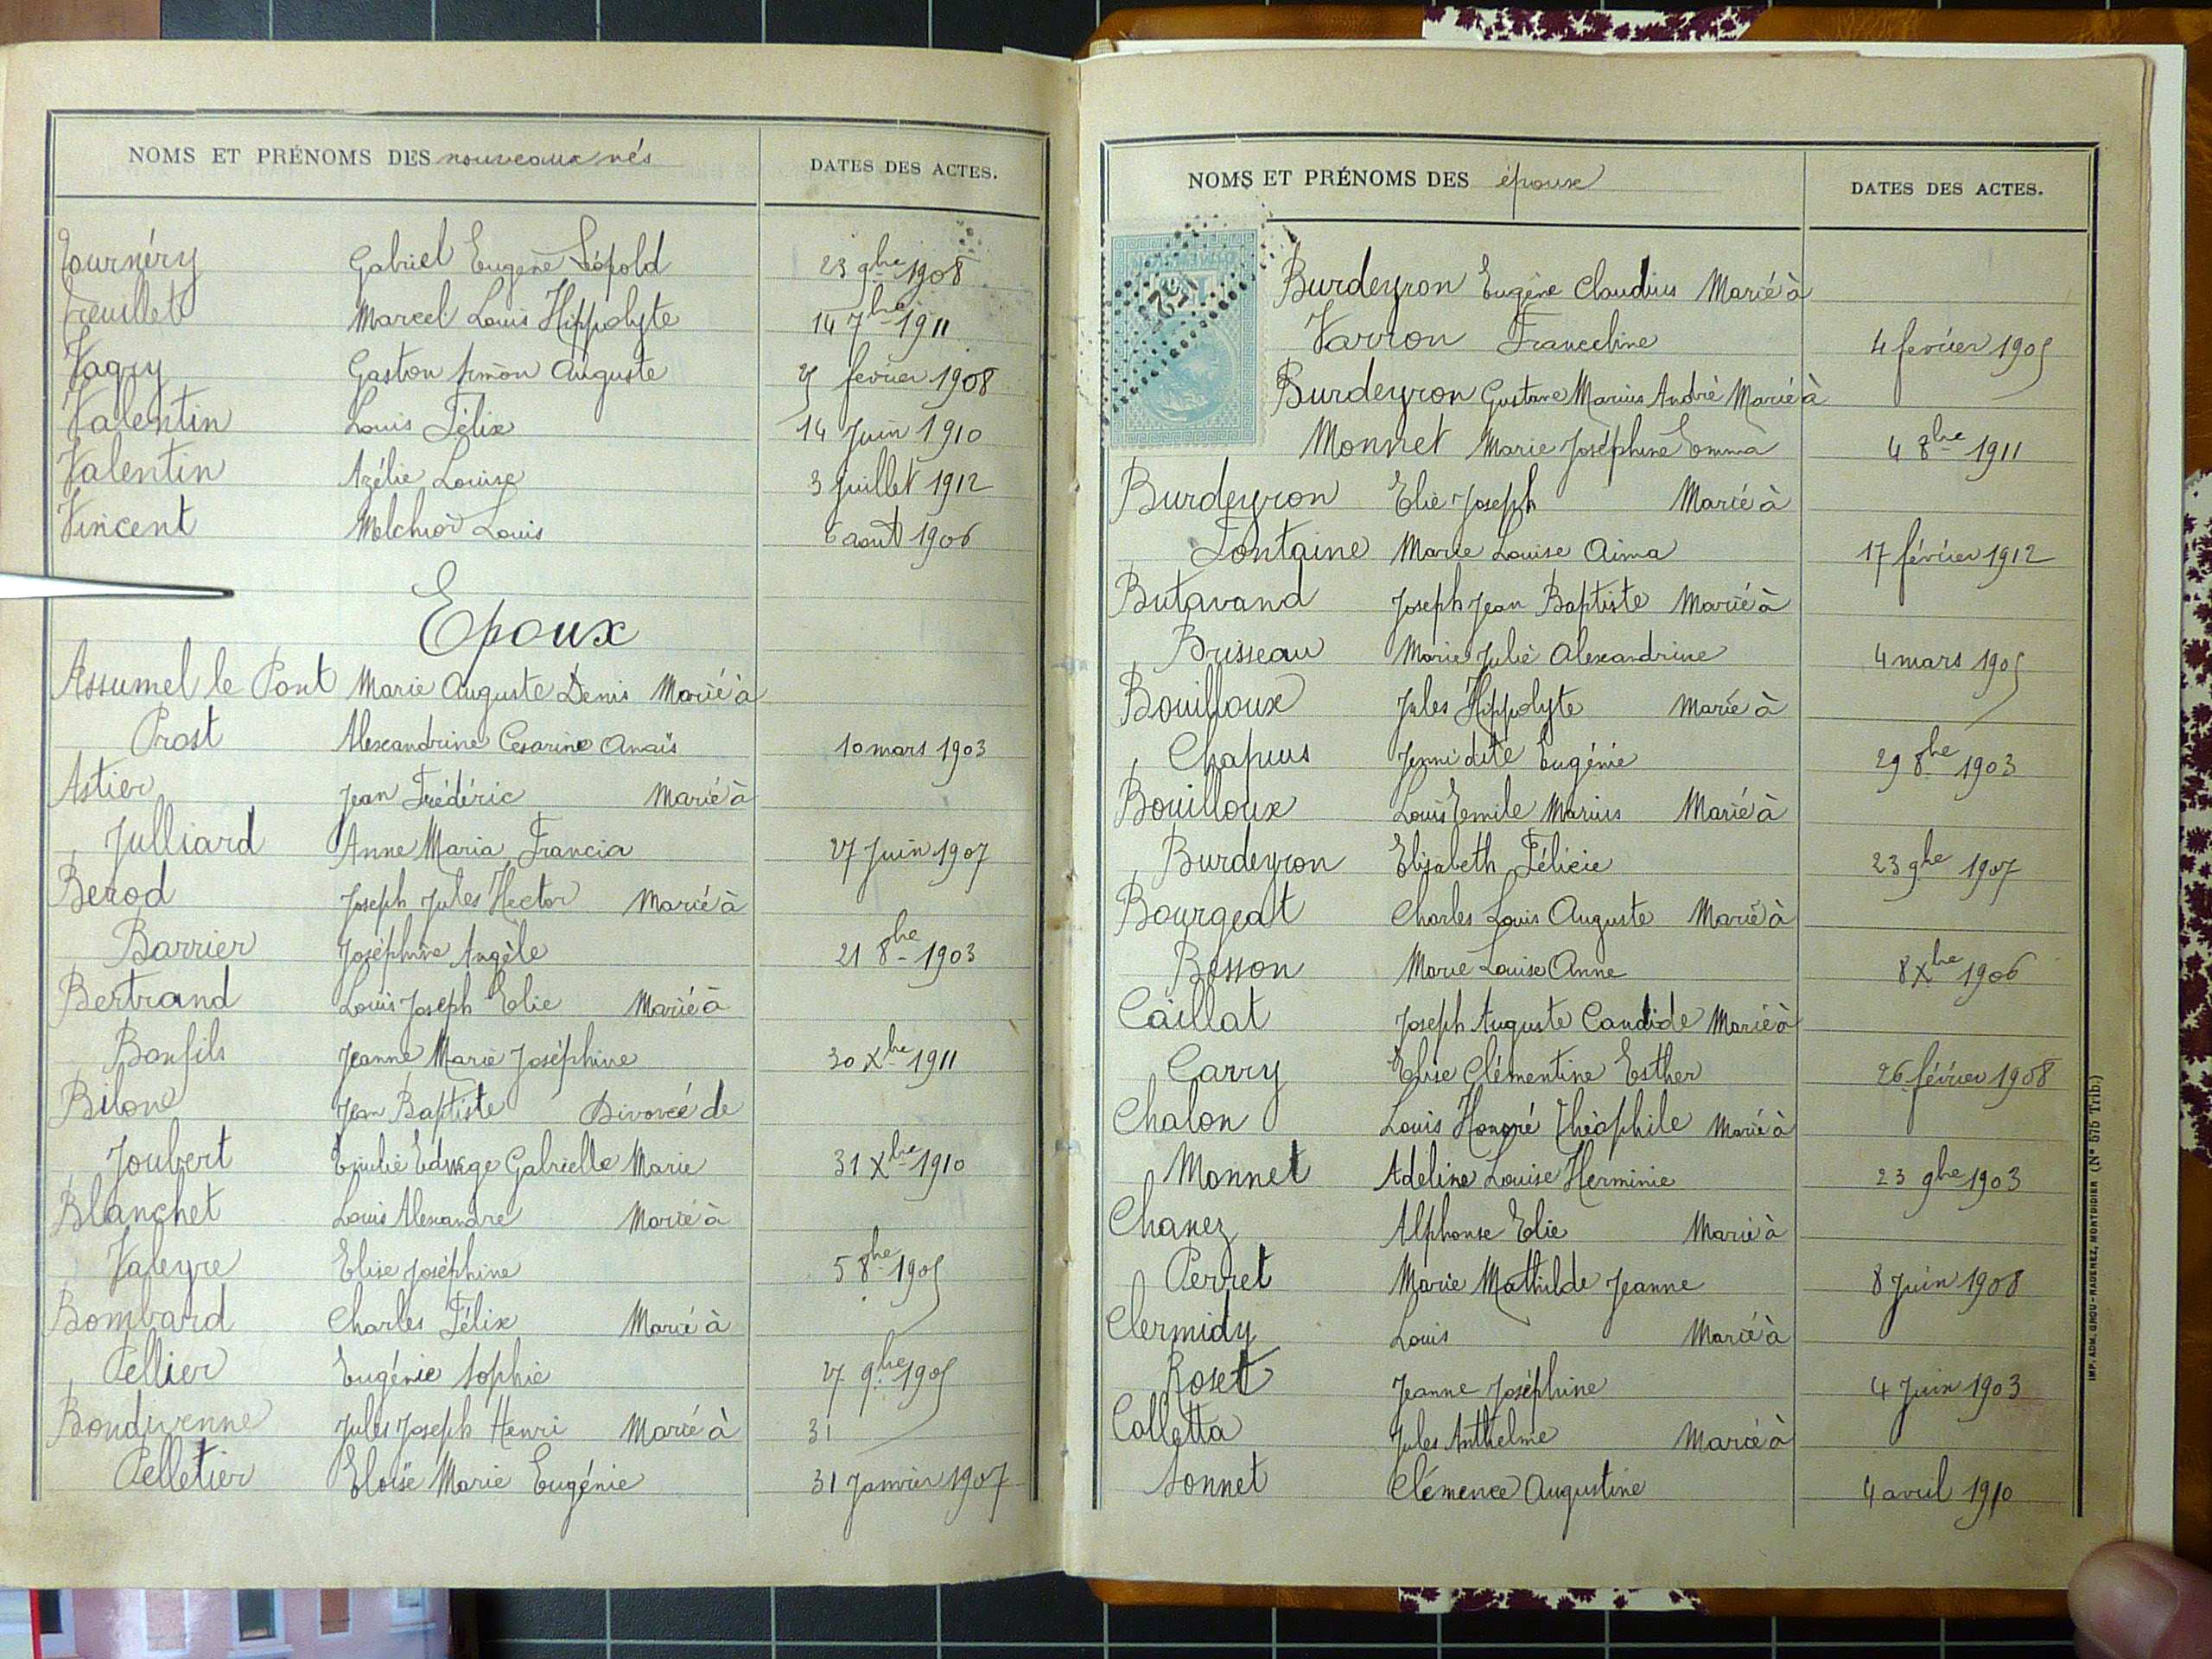 NOMS ET PRÉNOMS DES nouveaux nés DATES DES ACTES.
Tournéry Gabriel Eugene Léopold 23 9bre 1908
Treuillet Marcel Louis Hippolyte 14 7bre 1911
Vagry Gaston Simon Auguste 25 fevrier 1908
Valentin Louis Félix 14 Juin 1910
Valentin Azélie Louise 3 Juillet 1912
Vincent Melchior Louis 6 aout 1906
Epoux
Assumel le Pont Marie Auguste Denis Marié à
Prost Alexandrine Cesarine Anaïs 10 mars 1903
Astier Jean Frédéric Marié à
Julliard Anne Maria Francia 27 Juin 1907
Berod Joseph Jules Hector Marié à
Barrier Joséphine Angèle 21 8bre 1903
Bertrand Louis Joseph Elie Marié à
Bonfils Jeanne Marie Joséphine 30 Xbre 1911
Bilone Jean Baptiste Divorcé de
Joubert Emilie Edwige Gabrielle Marie 31 Xbre 1910
Blanchet Louis Alexandre Marié à
Valeyre Elise Joséphine 5 8bre 1905
Bombard Charles Félix Marié à
Pellier Eugénie Sophie 27 9bre 1905
Bondivenne Jules Joseph Henri Marié à 31
Pelletier Eloïse Marie Eugénie 31 Janvier 1907
NOMS ET PRÉNOMS DES époux DATES DES ACTES.
Burdeyron Eugène Claudius Marié à
Varron Franceline 4 fevrier 1905
Burdeyron Gustave Marius André Marié à
Monnet Marie Joséphine Emma 4 8bre 1911
Burdeyron Elie Joseph Marié à
Fontaine Marie Louise Aima 17 février 1912
Butavand Joseph Jean Baptiste Marié à
Brisseau Marie Julie Alexandrine 4 mars 1905
Bouilloux Jules Hippolyte Marié à
Chapuis Jenni dite Eugénie 29 8bre 1903
Bouilloux Louis Emile Marius Marié à
Burdeyron Elisabeth Félicie 23 9bre 1907
Bourgeat Charles Louis Auguste Marié à
Besson Marie Louise Anne 8 Xbre 1906
Caillat Joseph Auguste Candide Marié à
Carry Elise Clémentine Esther 26 février 1908
Chalon Louis Honoré Théophile Marié à
Monnet Adeline Louise Herminie 23 9bre 1903
Chanez Alphonse Elie Marié à
Perret Marie Mathilde Jeanne 8 Juin 1908
Clermidy Louis Marié à
Roset Jeanne Joséphine 4 Juin 1903
Colletta Jules Anthelme Marié à
Sonnet Clémence Augustine 4 avril 1910